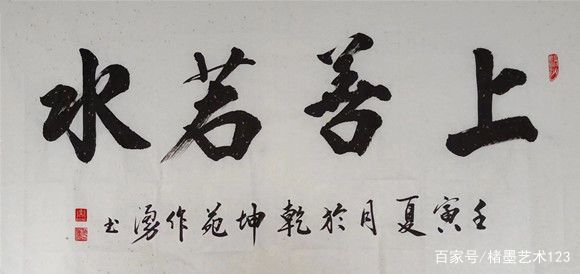 上善若水
壬寅夏月於乾坤苑作勇书
百家号/楮墨艺术123